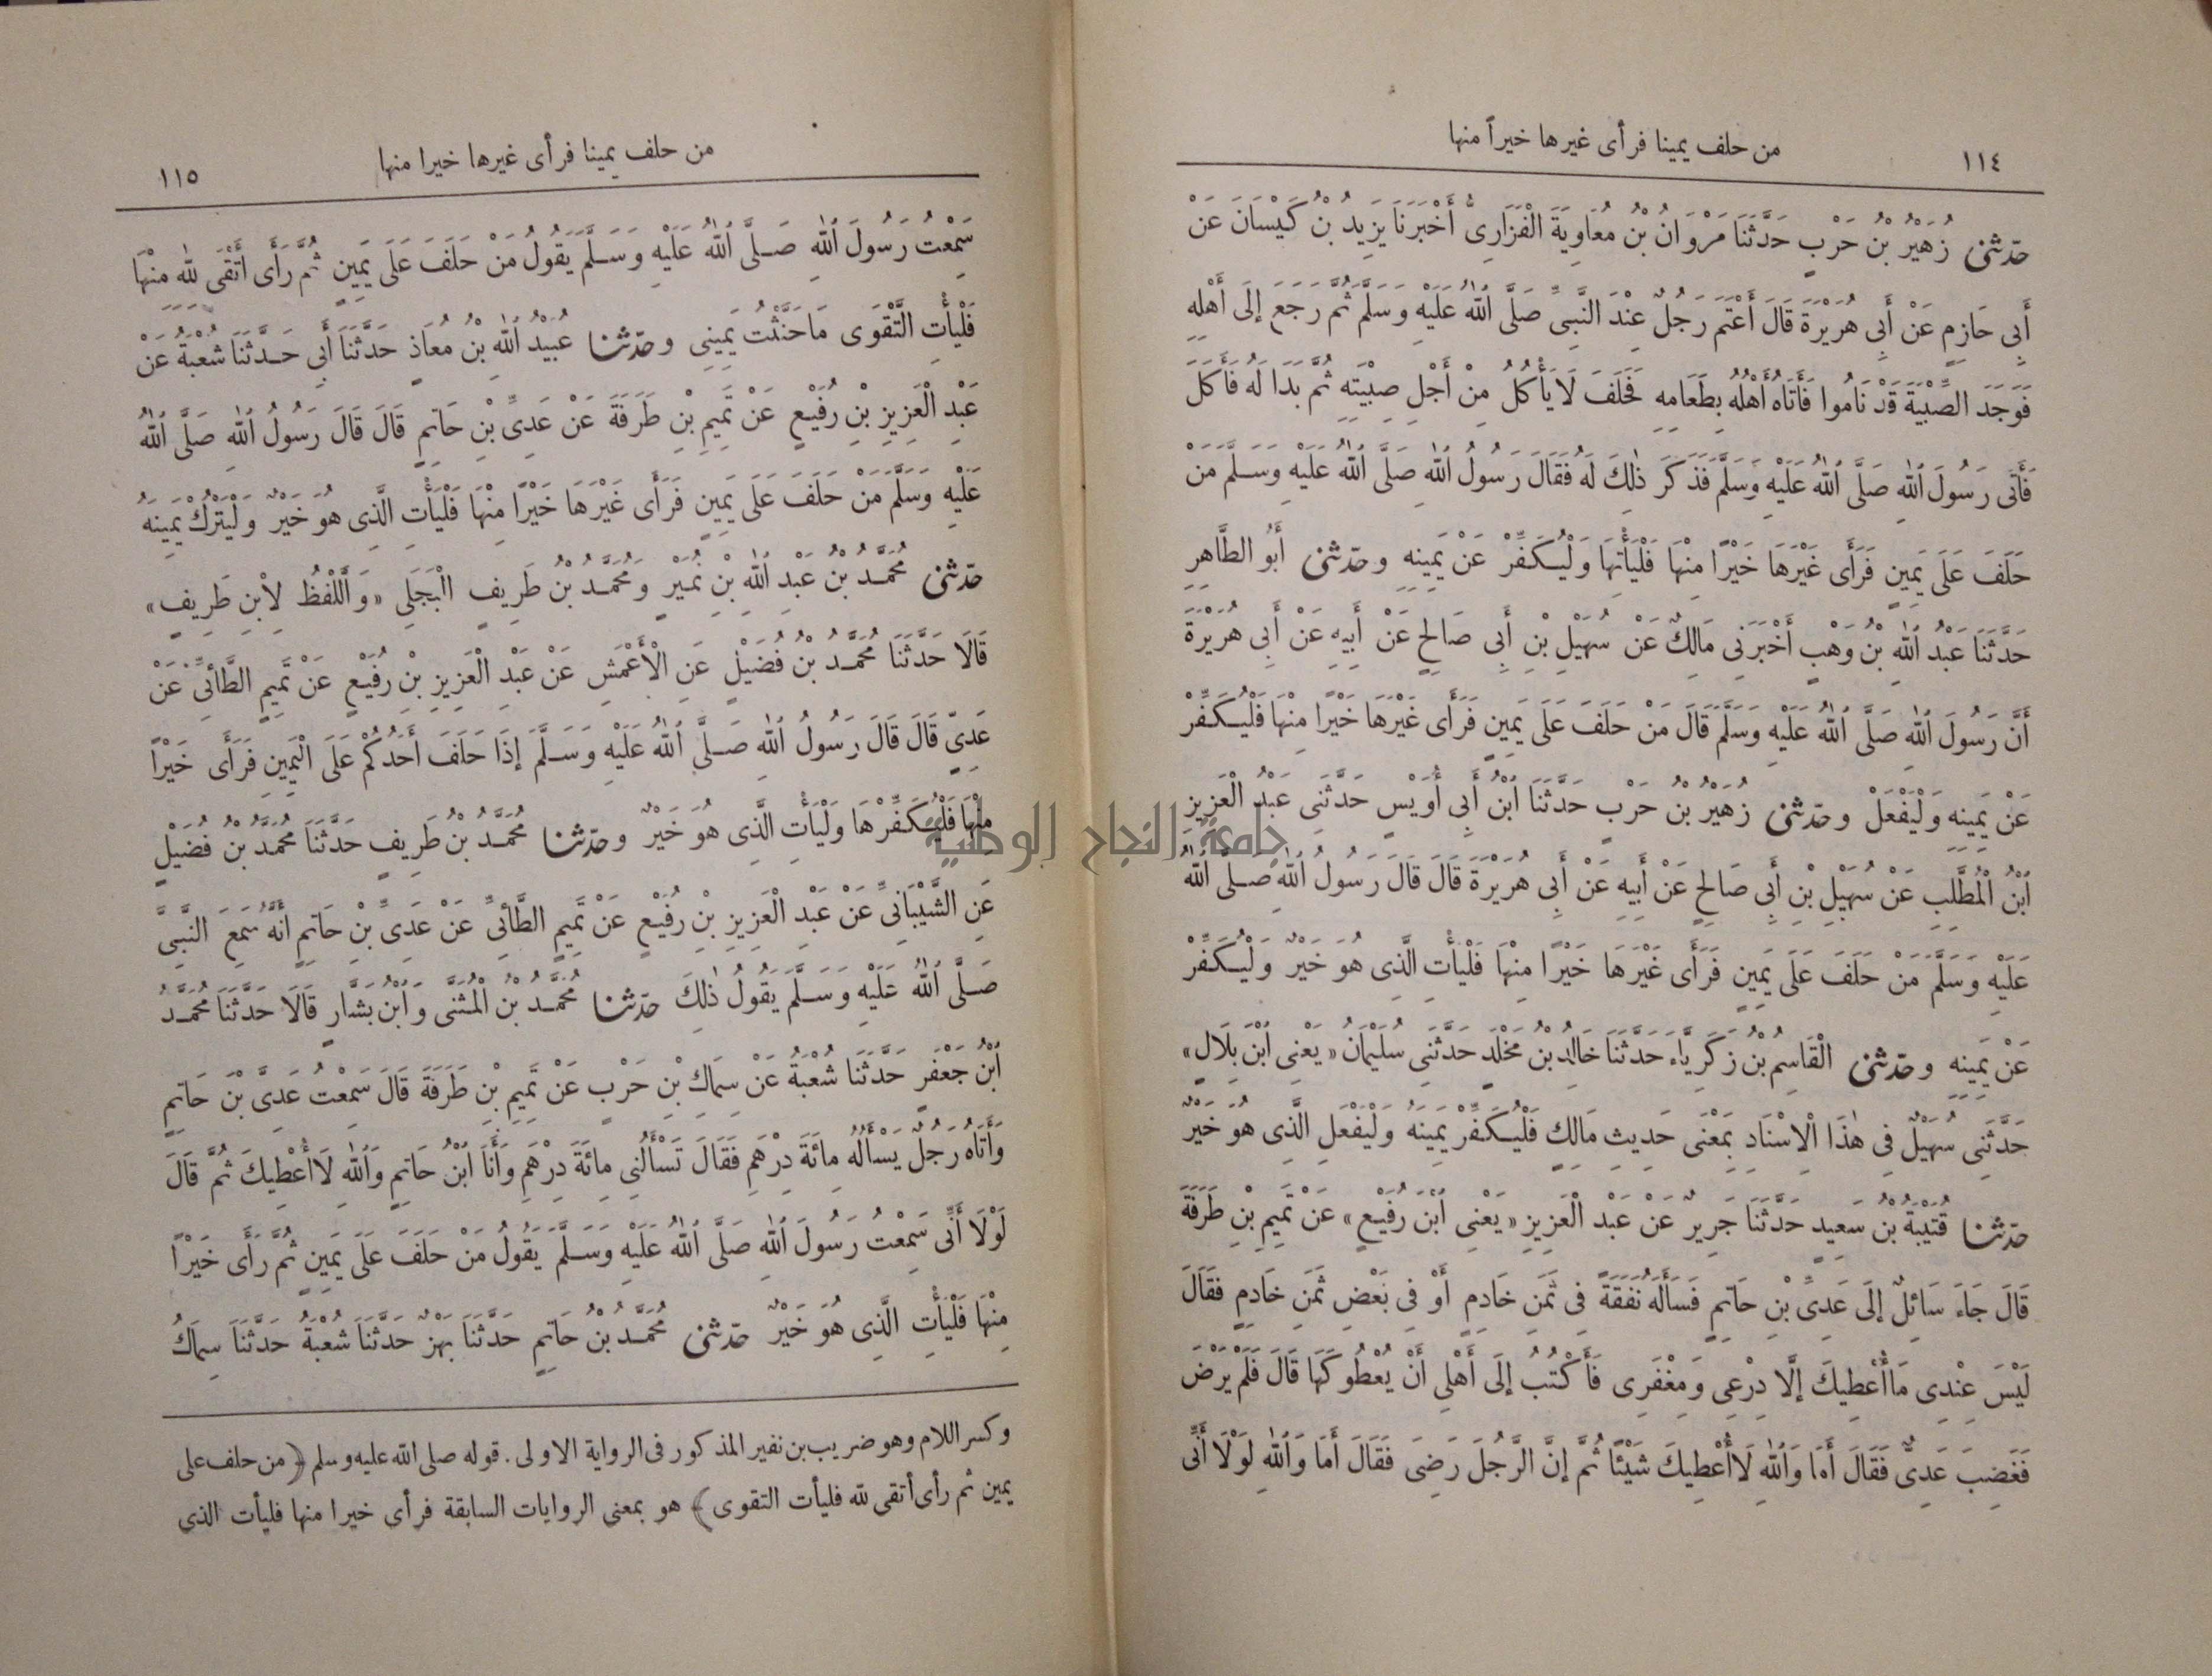 ١١٤ من حلف يمينا فرأى غيرها خيراً منها
حدّثنى زُهَيْرُ بْنُ حَرْبٍ حَدَّثَنَا مَرْوَانُ بْنُ مُعَاوِيَةَ الْفَزَارِىُّ أَخْبَرَنَا يَزِيدُ بْنُ كَيْسَانَ عَنْ
أَبِى حَازِمٍ عَنْ أَبِى هُرَيْرَةَ قَالَ أَعْتَمَ رَجُلٌ عِنْدَ النَّبِىِّ صَلَّى اللهُ عَلَيْهِ وَسَلَّمَ ثُمَّ رَجَعَ إِلَى أَهْلِهِ
فَوَجَدَ الصِّبْيَةَ قَدْ نَامُوا فَأَتَاهُ أَهْلُهُ بِطَعَامِهِ فَحَلَفَ لَا يَأْكُلُ مِنْ أَجْلِ صِبْيَتِهِ ثُمَّ بَدَا لَهُ فَأَكَلَ
فَأَتَى رَسُولَ اللهِ صَلَّى اللهُ عَلَيْهِ وَسَلَّمَ فَذَكَرَ ذٰلِكَ لَهُ فَقَالَ رَسُولُ اللهِ صَلَّى اللهُ عَلَيْهِ وَسَلَّمَ مَنْ
حَلَفَ عَلَى يَمِينٍ فَرَأَى غَيْرَهَا خَيْرًا مِنْهَا فَلْيَأْتِهَا وَلْيُكَفِّرْ عَنْ يَمِينِهِ وحدّثنى أَبُو الطَّاهِرِ
حَدَّثَنَا عَبْدُ اللهِ بْنُ وَهْبٍ أَخْبَرَنِى مَالِكٌ عَنْ سُهَيْلِ بْنِ أَبِى صَالِحٍ عَنْ أَبِيهِ عَنْ أَبِى هُرَيْرَةَ
أَنَّ رَسُولَ اللهِ صَلَّى اللهُ عَلَيْهِ وَسَلَّمَ قَالَ مَنْ حَلَفَ عَلَى يَمِينٍ فَرَأَى غَيْرَهَا خَيْرًا مِنْهَا فَلْيُكَفِّرْ
عَنْ يَمِينِهِ وَلْيَفْعَلْ وحدّثنى زُهَيْرُ بْنُ حَرْبٍ حَدَّثَنَا ابْنُ أَبِى أُوَيْسٍ حَدَّثَنِى عَبْدُ الْعَزِيزِ
ابْنُ الْمُطَّلِبِ عَنْ سُهَيْلِ بْنِ أَبِى صَالِحٍ عَنْ أَبِيهِ عَنْ أَبِى هُرَيْرَةَ قَالَ قَالَ رَسُولُ اللهِ صَلَّى اللهُ
عَلَيْهِ وَسَلَّمَ مَنْ حَلَفَ عَلَى يَمِينٍ فَرَأَى غَيْرَهَا خَيْرًا مِنْهَا فَلْيَأْتِ الَّذِى هُوَ خَيْرٌ وَلْيُكَفِّرْ
عَنْ يَمِينِهِ وحدّثنى الْقَاسِمُ بْنُ زَكَرِيَّاءَ حَدَّثَنَا خَالِدُ بْنُ مَخْلَدٍ حَدَّثَنِى سُلَيْمَانُ «يَعْنِى ابْنَ بِلَالٍ»
حَدَّثَنِى سُهَيْلٌ فِى هٰذَا الْإِسْنَادِ بِمَعْنَى حَدِيثِ مَالِكٍ فَلْيُكَفِّرْ يَمِينَهُ وَلْيَفْعَلِ الَّذِى هُوَ خَيْرٌ
حدّثنا قُتَيْبَةُ بْنُ سَعِيدٍ حَدَّثَنَا جَرِيرٌ عَنْ عَبْدِ الْعَزِيزِ «يَعْنِى ابْنَ رُفَيْعٍ» عَنْ تَمِيمِ بْنِ طَرَفَةَ
قَالَ جَاءَ سَائِلٌ إِلَى عَدِىِّ بْنِ حَاتِمٍ فَسَأَلَهُ نَفَقَةً فِى ثَمَنِ خَادِمٍ أَوْ فِى بَعْضِ ثَمَنِ خَادِمٍ فَقَالَ
لَيْسَ عِنْدِى مَا أُعْطِيكَ إِلَّا دِرْعِى وَمِغْفَرِى فَأَكْتُبُ إِلَى أَهْلِى أَنْ يُعْطُوكَهَا قَالَ فَلَمْ يَرْضَ
فَغَضِبَ عَدِىٌّ فَقَالَ أَمَا وَاللهِ لَا أُعْطِيكَ شَيْئًا ثُمَّ إِنَّ الرَّجُلَ رَضِىَ فَقَالَ أَمَا وَاللهِ لَوْلَا أَنِّى
من حلف يمينا فرأى غيرها خيرا منها ١١٥
سَمِعْتُ رَسُولَ اللهِ صَلَّى اللهُ عَلَيْهِ وَسَلَّمَ يَقُولُ مَنْ حَلَفَ عَلَى يَمِينٍ ثُمَّ رَأَى أَتْقَى لِلهِ مِنْهَا
فَلْيَأْتِ التَّقْوَى مَا حَنَّثْتُ يَمِينِى وحدّثنا عُبَيْدُ اللهِ بْنُ مُعَاذٍ حَدَّثَنَا أَبِى حَدَّثَنَا شُعْبَةُ عَنْ
عَبْدِ الْعَزِيزِ بْنِ رُفَيْعٍ عَنْ تَمِيمِ بْنِ طَرَفَةَ عَنْ عَدِىِّ بْنِ حَاتِمٍ قَالَ قَالَ رَسُولُ اللهِ صَلَّى اللهُ
عَلَيْهِ وَسَلَّمَ مَنْ حَلَفَ عَلَى يَمِينٍ فَرَأَى غَيْرَهَا خَيْرًا مِنْهَا فَلْيَأْتِ الَّذِى هُوَ خَيْرٌ وَلْيَتْرُكْ يَمِينَهُ
حدّثنى مُحَمَّدُ بْنُ عَبْدِ اللهِ بْنِ نُمَيْرٍ وَمُحَمَّدُ بْنُ طَرِيفٍ الْبَجَلِى «وَاللَّفْظُ لِابْنِ طَرِيفٍ»
قَالَا حَدَّثَنَا مُحَمَّدُ بْنُ فُضَيْلٍ عَنِ الْأَعْمَشِ عَنْ عَبْدِ الْعَزِيزِ بْنِ رُفَيْعٍ عَنْ تَمِيمٍ الطَّائِىِّ عَنْ
عَدِىٍّ قَالَ قَالَ رَسُولُ اللهِ صَلَّى اللهُ عَلَيْهِ وَسَلَّمَ إِذَا حَلَفَ أَحَدُكُمْ عَلَى الْيَمِينِ فَرَأَى خَيْرًا
مِنْهَا فَلْيُكَفِّرْهَا وَلْيَأْتِ الَّذِى هُوَ خَيْرٌ وحدّثنا مُحَمَّدُ بْنُ طَرِيفٍ حَدَّثَنَا مُحَمَّدُ بْنُ فُضَيْلٍ
عَنِ الشَّيْبَانِىِّ عَنْ عَبْدِ الْعَزِيزِ بْنِ رُفَيْعٍ عَنْ تَمِيمٍ الطَّائِىِّ عَنْ عَدِىِّ بْنِ حَاتِمٍ أَنَّهُ سَمِعَ النَّبِىَّ
صَلَّى اللهُ عَلَيْهِ وَسَلَّمَ يَقُولُ ذٰلِكَ حدّثنا مُحَمَّدُ بْنُ الْمُثَنَّى وَابْنُ بَشَّارٍ قَالَا حَدَّثَنَا مُحَمَّدُ
ابْنُ جَعْفَرٍ حَدَّثَنَا شُعْبَةُ عَنْ سِمَاكِ بْنِ حَرْبٍ عَنْ تَمِيمِ بْنِ طَرَفَةَ قَالَ سَمِعْتُ عَدِىَّ بْنَ حَاتِمٍ
وَأَتَاهُ رَجُلٌ يَسْأَلُهُ مِائَةَ دِرْهَمٍ فَقَالَ تَسْأَلُنِى مِائَةَ دِرْهَمٍ وَأَنَا ابْنُ حَاتِمٍ وَاللهِ لَا أُعْطِيكَ ثُمَّ قَالَ
لَوْلَا أَنِّى سَمِعْتُ رَسُولَ اللهِ صَلَّى اللهُ عَلَيْهِ وَسَلَّمَ يَقُولُ مَنْ حَلَفَ عَلَى يَمِينٍ ثُمَّ رَأَى خَيْرًا
مِنْهَا فَلْيَأْتِ الَّذِى هُوَ خَيْرٌ حدّثنى مُحَمَّدُ بْنُ حَاتِمٍ حَدَّثَنَا بَهْزٌ حَدَّثَنَا شُعْبَةُ حَدَّثَنَا سِمَاكُ
وكسر اللام وهو ضريب بن نفير المذكور فى الرواية الاولى. قوله صلى الله عليه وسلم ﴿من حلف على
يمين ثم رأى أتقى لله فليأت التقوى﴾ هو بمعنى الروايات السابقة فرأى خيرا منها فليأت الذى
جامعة النجاح الوطنية